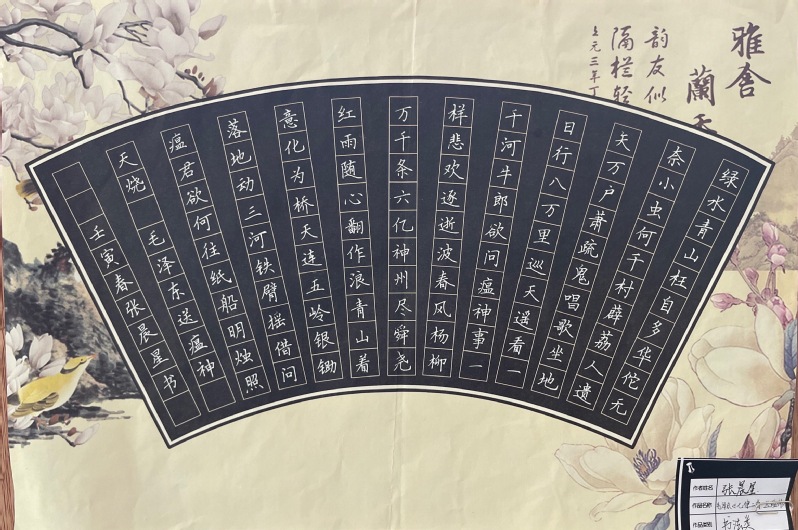 绿水青山枉自多华佗无
奈小虫何千村辟荔人遗
矢万户萧疏鬼唱歌坐地
日行八万里巡天遥看一
千河牛郎欲问瘟神事一
样悲欢逐逝波春风杨柳
万千条六亿神州尽舜尧
红雨随心翻作浪青山着
意化为桥天连五岭银锄
落地动三河铁臂摇借问
瘟君欲何往纸船明烛照
天烧 毛泽东送瘟神
壬寅春张晨星书
雅舍
蘭
韵友似
隔栏轻
元三年丁
作者姓名 张晨星
作品名称
作品类别